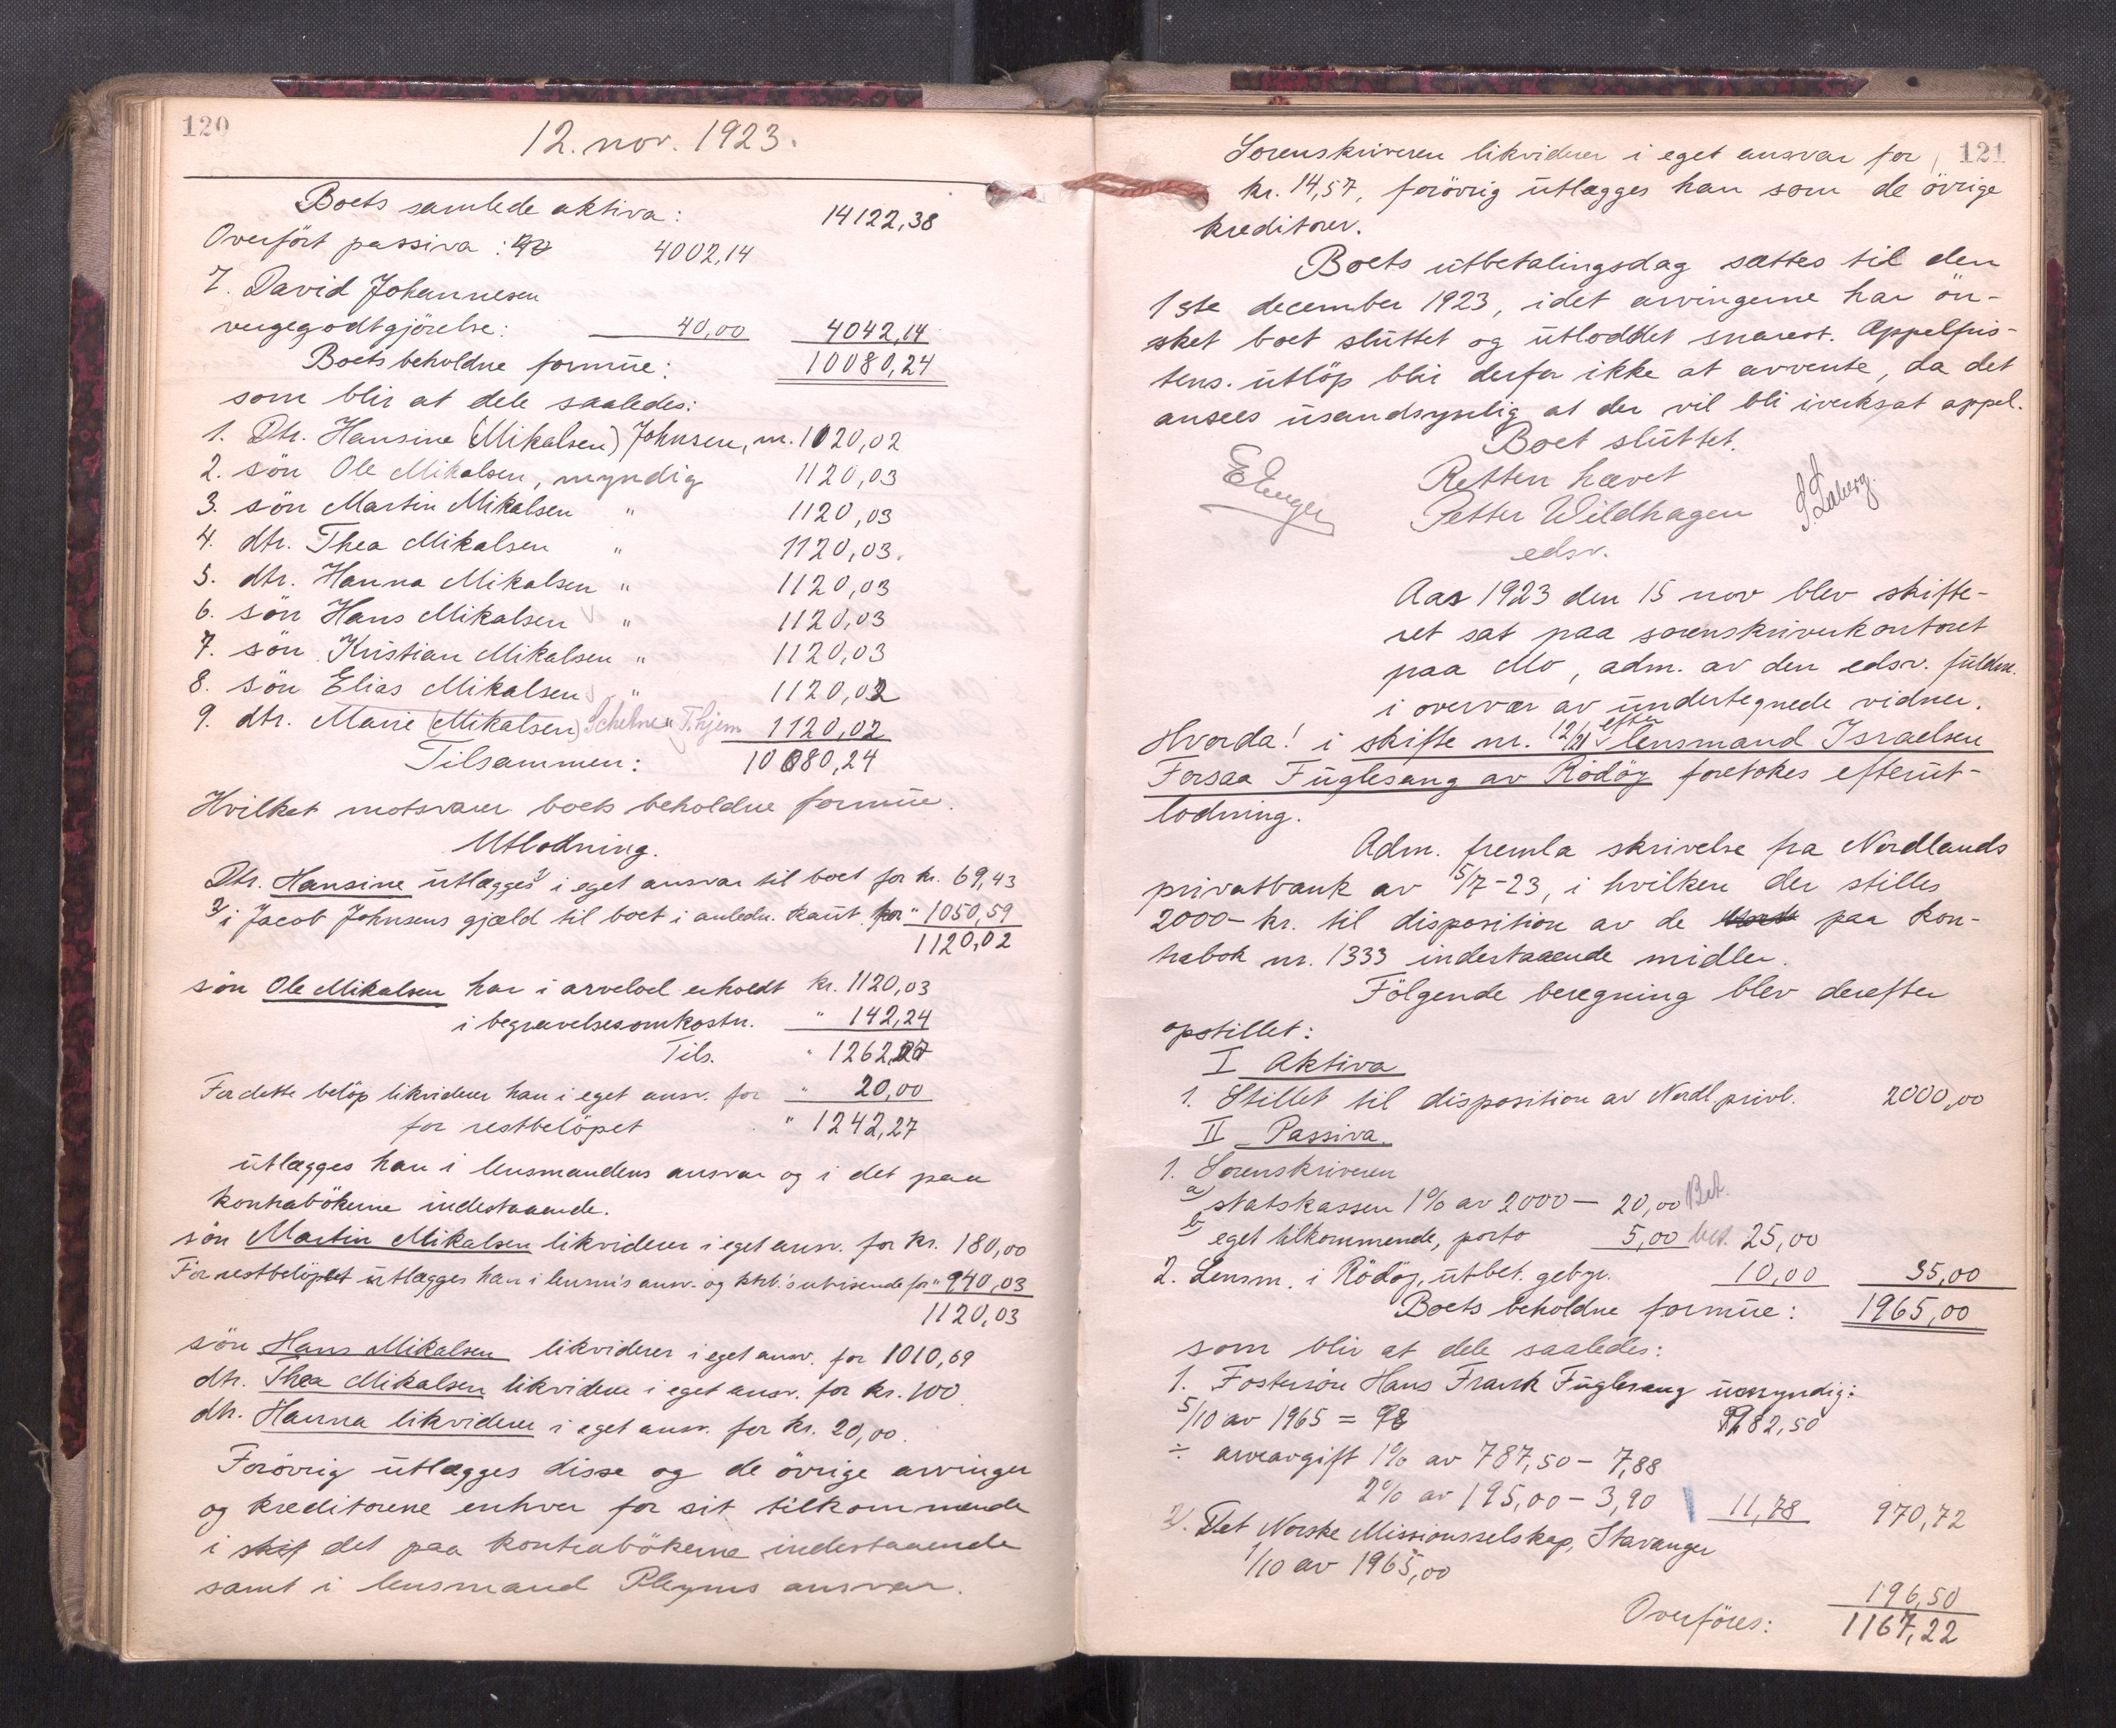 120
12. nov. 1923.
Boets samlede aktiva: 14122,38
Overført passiva: 4002,14
7. David Johannesen
vergegodtgjörelse: 40,00 4042,14
Boets beholdne formue: 10080,24
som blir at dele saaledes:
1. Dtr. Hansine (Mikalsen) Johnsen, m. 1120,02
2. sön Ole Mikalsen, myndig 1120,03
3. sön Martin Mikalsen " 1120,03
4. dtr. Thea Mikalsen " 1120,03.
5. dtr. Hanna Mikalsen " 1120,03
6. sön Hans Mikalsen " 1120,03
7. sön Kristian Mikalsen " 1120,03
8. sön Elias Mikalsen " 1120,02
9. dtr. Marie (Mikalsen) " 1120,02
Tilsammen: 10080,24
Hvilket motsvarer boets beholdne formue.
Utlodning.
Dtr. Hansine utlægges i eget ansvar til boet for kr. 69,43
2/ i Jacob Johnsens gjæld til boet i anledn. kaut. for " 1050,59
1120,02
sön Ole Mikalsen har i arvelod erholdt kr. 1120,03
i begravelsesomkostn. " 142,24
Tils. " 1262,27
For dette belöp likviderer han i eget ansv. for " 20,00
for restbelöpet " 1242,27
utlægges han i lensmandens ansvar og i det paa
kontrabökerne indestaaende.
sön Martin Mikalsen likviderer i eget ansv. for kr. 180,00
For restbelöpet utlægges han i lensm's ansv. og ktrb.'s utvisende for " 940,03
1120,03
sön Hans Mikalsen likviderer i eget ansv. for 1010,69
dtr. Thea Mikalsen likviderer i eget ansv. for kr. 100
dtr. Hanna likviderer i eget ansv. for kr. 20,00.
Forövrig utlægges disse og de övrige arvinger
og kreditorene enhver for sit tilkommende
i skif det paa kontrabökerne indestaaende
samt i lensmand Pleyms ansvar.
121
Sorenskriveren likviderer i eget ansvar for
kr. 14,57, forövrig utlægges han som de övrige
kreditorer.
Boets utbetalingsdag sættes til den
1ste december 1923, idet arvingerne har ön-
sket boet sluttet og utloddet snarest. Appelfris-
tens utlöp blir derfor ikke at avvente, da det
ansees usandsynlig at der vil bli iverksat appel.
Boet sluttet.
Retten hævet
Petter Wildhagen
edsv.
Aar 1923 den 15 nov blev skifte-
ret sat paa sorenskriverkontoret
paa Mo, adm. av den edsv. fuldm.
i overvær av undertegnede vidner.
Hvorda! i skifte nr. 12/21 efter lensmand Israelsen
Forsaa Fuglesang av Rödöy foretokes efterut-
lodning.
Adm. fremla skrivelse fra Nordlands
privatbank av 5/7-23, i hvilken der stilles
2000- kr. til disposition av de paa kon-
trabok nr. 1333 indestaaende midler.
Fölgende beregning blev derefter
opstillet:
I Aktiva
1. Stillet til disposition av Nordl. privb. 2000,00
II Passiva.
1. Sorenskriveren
a) statskassen 1% av 2000 - 20,00 Bet.
b) eget tilkommende, porto 5,00 bet. 25,00
2. Lensm. i Rödöy, utbet. gebyr. 10,00 35,00
Boets beholdne formue: 1965,00
som blir at dele saaledes:
1. Fostersön Hans Frank Fuglesang umyndig:
5/10 av 1965 = 98 982,50
÷ arveavgift 1% av 787,50 - 7,88
2% av 195,00 - 3,90 11,78 970,72
2). Det Norske Missionsselskap, Stavanger
1/10 av 1965,00 196,50
Overföres: 1167,22